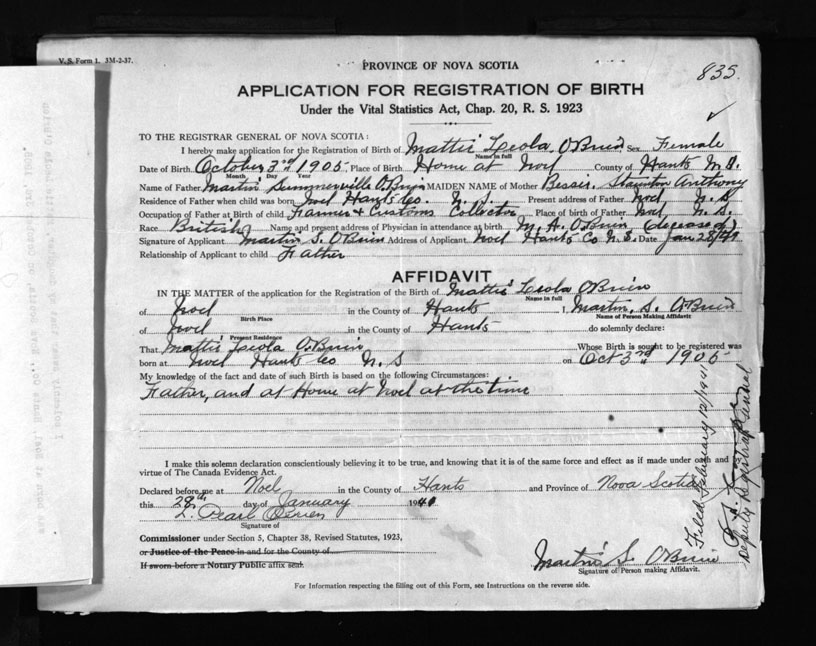 V. S. Form 1. 3M-2-37.
PROVINCE OF NOVA SCOTIA
835.
APPLICATION FOR REGISTRATION OF BIRTH
Under the Vital Statistics Act, Chap. 20, R. S. 1923
TO THE REGISTRAR GENERAL OF NOVA SCOTIA:
I hereby make application for the Registration of Birth of Mattie Leola O'Brien Sex Female
Name in full
Date of Birth October 3rd 1905 Place of Birth Home at Noel County of Hants N.S.
Month Day Year
Name of Father Martin Summerville O'Brien MAIDEN NAME of Mother Bessie Staunton Anthony
Residence of Father when child was born Noel Hants Co. N. S. Present address of Father Noel N. S
Occupation of Father at Birth of child Farmer & Customs Collector Place of birth of Father Noel N. S.
Race British Name and present address of Physician in attendance at birth M. A. O'Brien (deceased)
Signature of Applicant Martin S. O'Brien Address of Applicant Noel Hants Co N.S. Date Jan. 28/41
Relationship of Applicant to child Father
AFFIDAVIT
IN THE MATTER of the application for the Registration of the Birth of Mattie Leola O'Brien
Name in full
of Noel in the County of Hants I, Martin S. O'Brien
Birth Place Name of Person Making Affidavit
of Noel in the County of Hants do solemnly declare:
Present Residence
That Mattie Leola O'Brien Whose Birth is sought to be registered was
born at Noel Hants Co N. S on Oct 3rd 1905
My knowledge of the fact and date of such Birth is based on the following Circumstances:
Father, and at Home at Noel at the time
I make this solemn declaration conscientiously believing it to be true, and knowing that it is of the same force and effect as if made under oath and by
virtue of The Canada Evidence Act.
Declared before me at Noel in the County of Hants and Province of Nova Scotia
this 28th day of January 1941
L. Pearl O'Brien
Signature of
Commissioner under Section 5, Chapter 38, Revised Statutes, 1923,
or Justice of the Peace in and for the County of
If sworn before a Notary Public affix seal.
Martin S. O'Brien
Signature of Person making Affidavit.
For Information respecting the filling out of this Form, see Instructions on the reverse side.
Filed February 12/1941
Deputy Registrar General